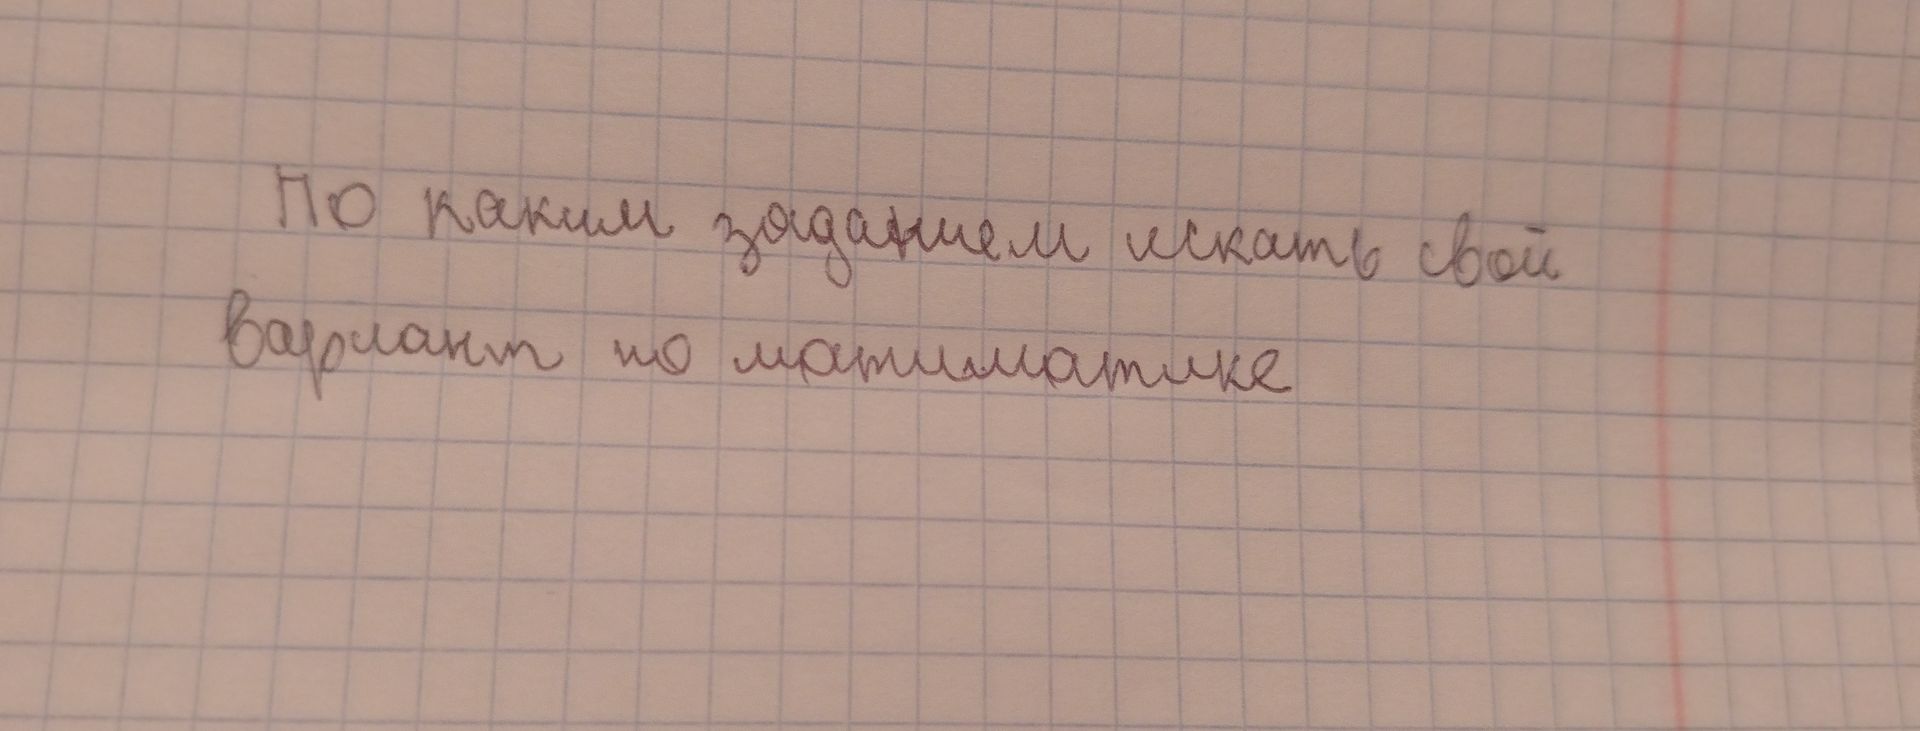 По каким заданием искать свой
вариант по матиматике